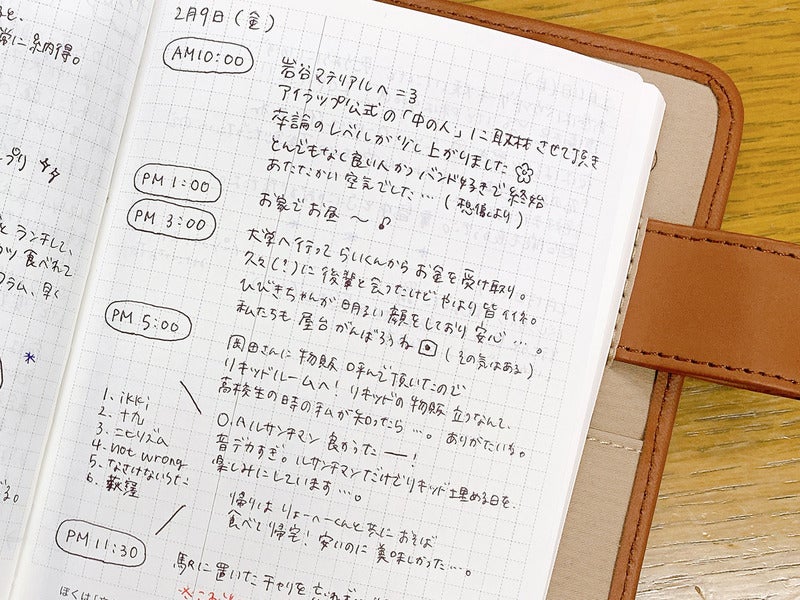 と、
常に納得。
プリ
とランチして、
食べれて
ラム、早く
る。
2月9日(金)
AM10:00
岩谷マテリアルへ=3
アイラップ公式の「中の人」に取材させて頂き
卒論のレベルが少し上がりました
とんでもなく良い人かつバンド好きで終始
あたたかい空気でした…(想像より)
PM 1:00
お家でお昼〜♪
PM 3:00
大学へ行ってらいくんからお金を受け取り。
久々(?)に後輩と会ったけどやはり皆イイネ。
ひびきちゃんが明るい顔をしており安心…。
私たちも屋台がんばろうね(その気はある)
PM 5:00
岡田さんに物販呼んで頂いたので
リキッドルームへ!リキッドの物販立つなんて、
高校生の時の私が知ったら…。ありがたいな。
O.Aルサンチマン良かったー!
音デカすぎ。ルサンチマンだけどリキッド埋める日を、
楽しみにしています…。
1. ikki
2. 十九
3. ニヒリズム
4. not wrong
5. なさけないうた
6. 荻窪
帰りはりょーへーくんと共におそば
食べて帰宅!安いのに美味しかった…。
PM 11:30
駅に置いたチャリを
ぼくは